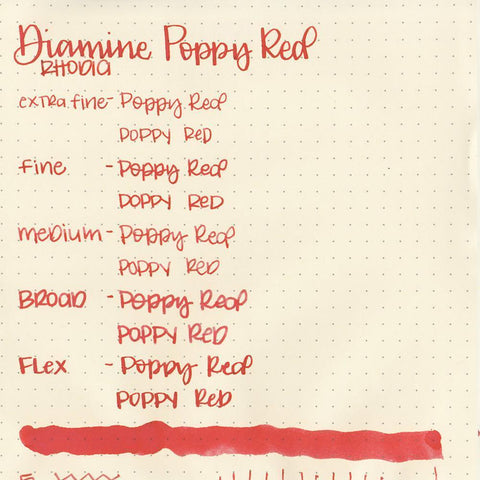 Diamine Poppy Red
RHODIA
extra fine - Poppy Red
POPPY RED
fine - Poppy Red
POPPY RED
medium - Poppy Red
POPPY RED
BROAD - Poppy Red
POPPY RED
FLex - Poppy Red
POPPY RED